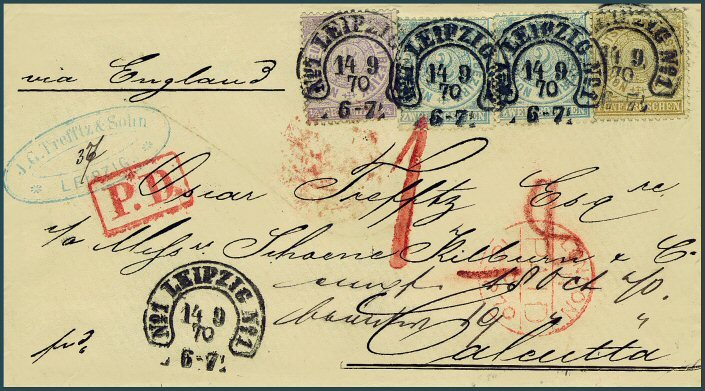 Nº1 LEIPZIG Nº1
14 9
70
6-7
Nº1 LEIPZIG Nº1
14 9
70
6-7
Nº1 LEIPZIG Nº1
14 9
70
6-7
LEIPZIG Nº1
14 9
70
6-7
via England
J.G. Trefftz & Sohn
LEIPZIG
37
P.D.
1
Oscar Trefftz Esqre
c/o Messrs Schoene Kilburn & Co
LONDON
PD
18 Oct 70
Nº1 LEIPZIG Nº1
14 9
70
6-7
19
Calcutta